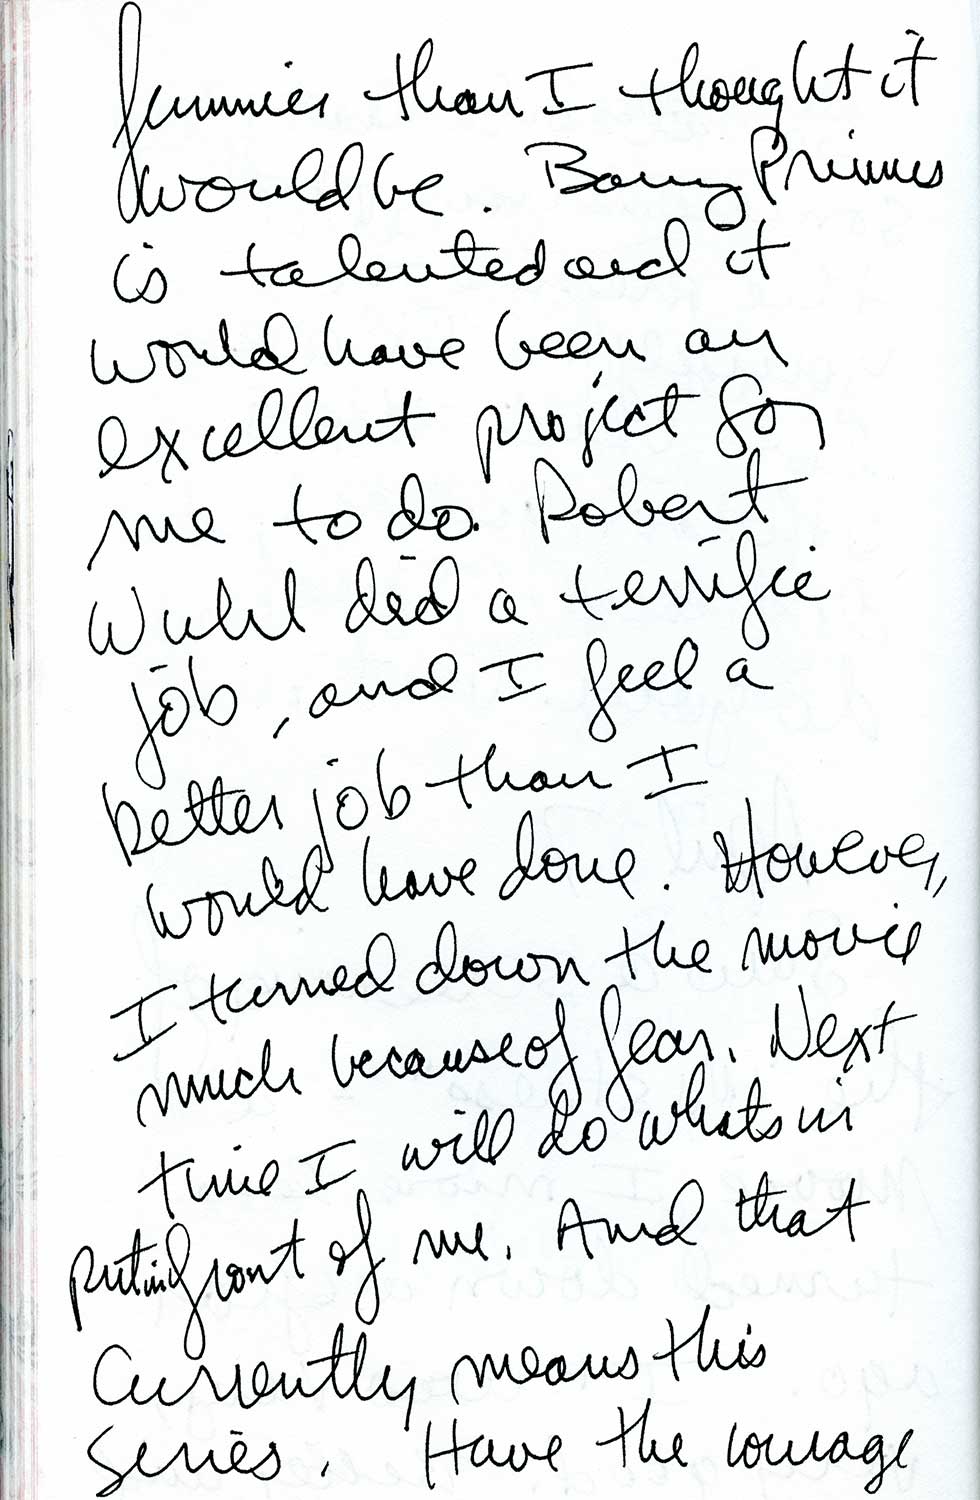 funnier than I thought it
would be. Barry Primus
is talented and it
would have been an
excellent project for
me to do. Robert
Wuhl did a terrific
job, and I feel a
better job than I
would have done. However,
I turned down the movie
much because of fear. Next
time I will do whats in
put in front of me. And that
currently means this
series. Have the courage